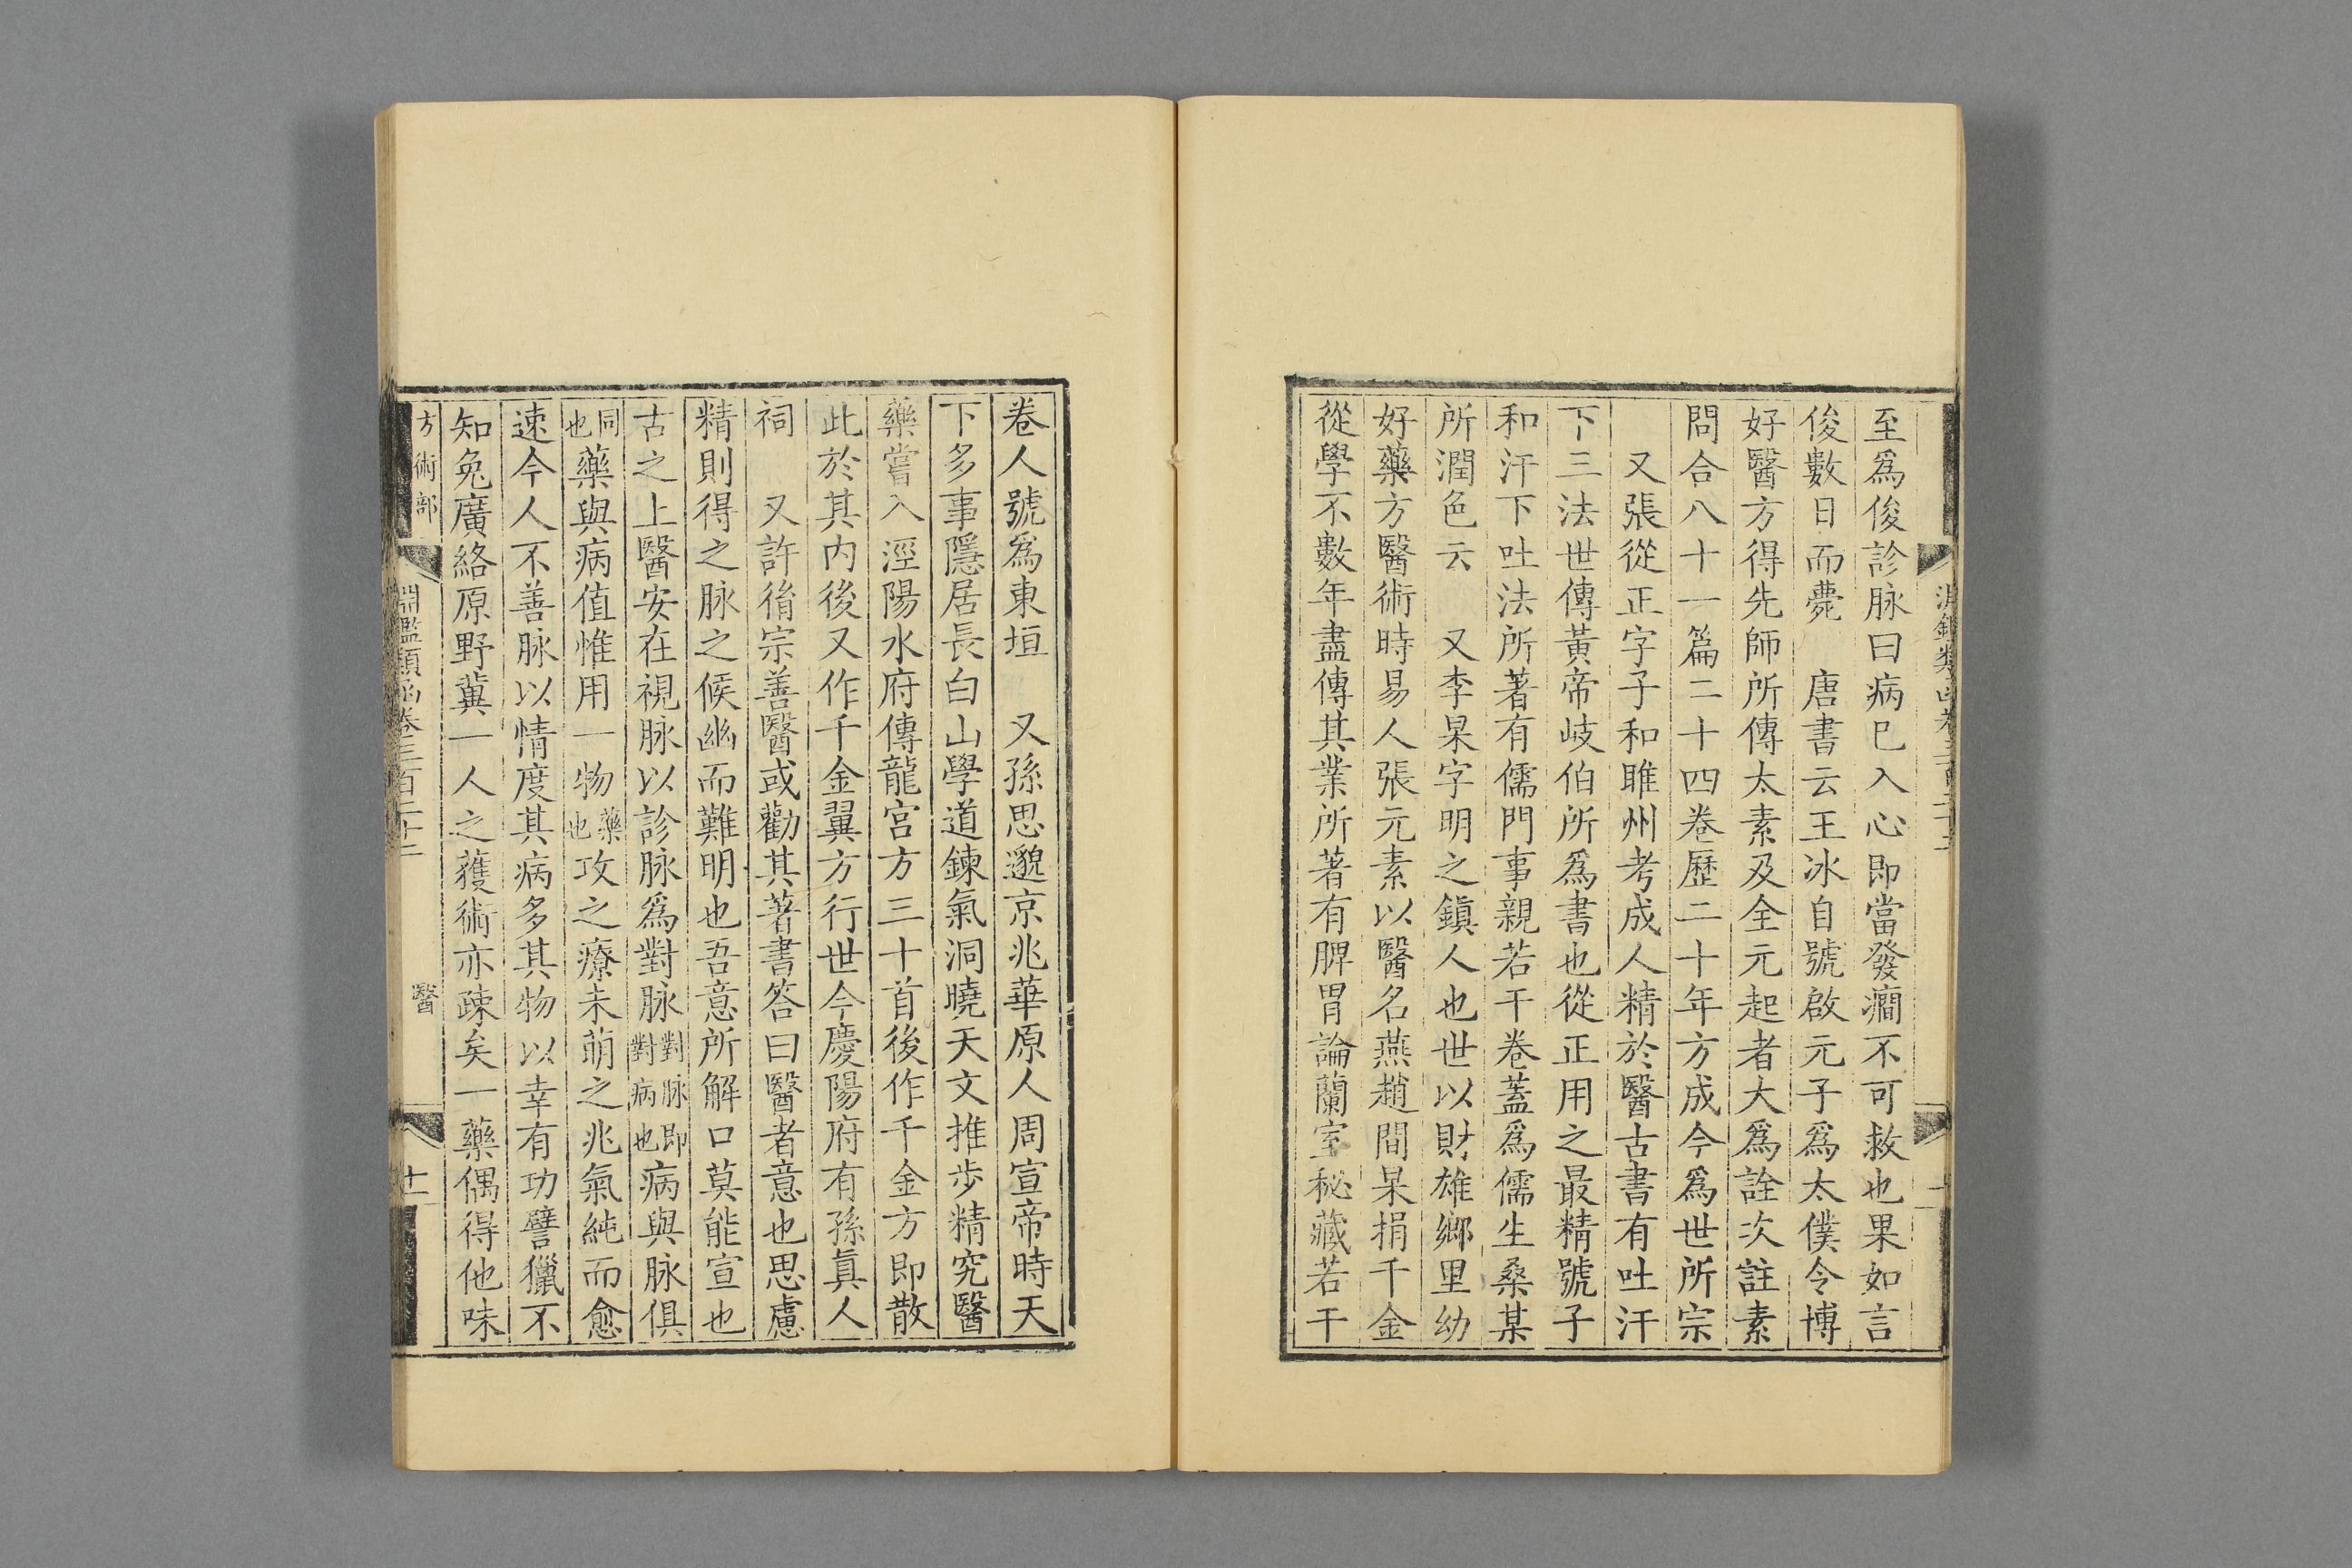 至爲俊診脉曰病已入心即當發癎不可救也果如言
俊數日而薨　唐書云王冰自號啟元子爲太僕令博
好醫方得先師所傳太素及全元起者大爲詮次註素
問合八十一篇二十四卷歷二十年方成今爲世所宗
又張從正字子和睢州考成人精於醫古書有吐汗
下三法世傳黃帝岐伯所爲書也從正用之最精號子
和汗下吐法所著有儒門事親若干卷蓋爲儒生桑某
所潤色云　又李杲字明之鎮人也世以財雄鄉里幼
好藥方醫術時易人張元素以醫名燕趙間杲捐千金
從學不數年盡傳其業所著有脾胃論蘭室秘藏若干
卷人號爲東垣　又孫思邈京兆華原人周宣帝時天
下多事隱居長白山學道鍊氣洞曉天文推步精究醫
藥嘗入涇陽水府傳龍宮方三十首後作千金方即散
此於其内後又作千金翼方行世今慶陽府有孫眞人
祠　又許㣲宗善醫或勸其著書答曰醫者意也思慮
精則得之脉之候幽而難明也吾意所解口莫能宣也
古之上醫安在視脉以診脉爲對脉對脉即對病也病與脉俱
同也藥與病值惟用一物藥也攻之療未萌之兆氣純而愈
速今人不善脉以情度其病多其物以幸有功譬獵不
知兔廣絡原野冀一人之獲術亦疎矣一藥偶得他味
方術部　淵鑑類函卷三百二十二　醫　十一